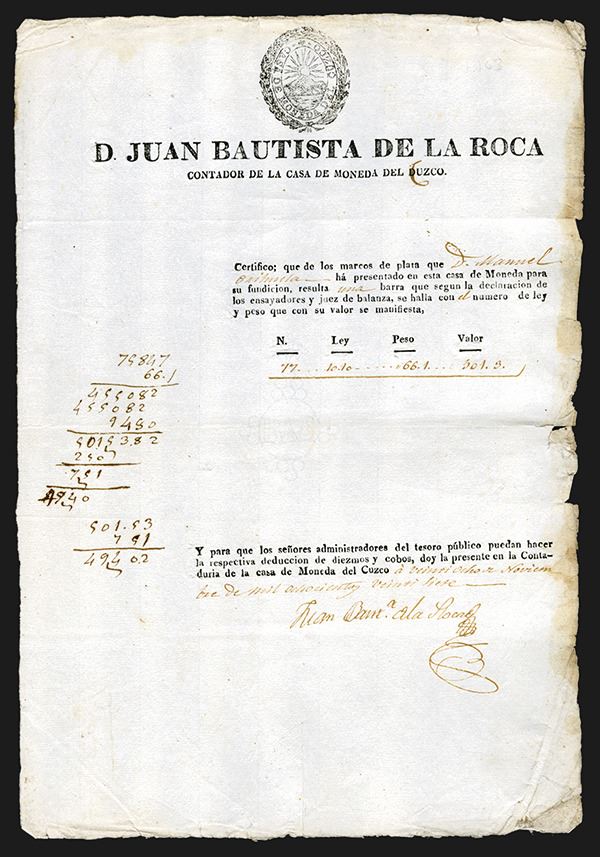 D. JUAN BAUTISTA DE LA ROCA
CONTADOR DE LA CASA DE MONEDA DEL CUZCO.
Certifico; que de los marcos de plata que D. Manuel
há presentado en esta casa de Moneda para
su fundicion, resulta una barra que segun la declaracion de
los ensayadores y juez de balanza, se halla con el numero de ley
y peso que con su valor se manifiesta,
N. Ley Peso Valor
77 1010 66.1 501.3.
75847
66.1
455082
455082
9480
5015382
250
751
4940
501.53
751
49402
Y para que los señores administradores del tesoro público puedan hacer
la respectiva deduccion de diezmos y cobos, doy la presente en la Conta-
duria de la casa de Moneda del Cuzco á veinti ocho de Noviem
bre de mil ochocientos veinti siete
Juan Baut.a de la Roca